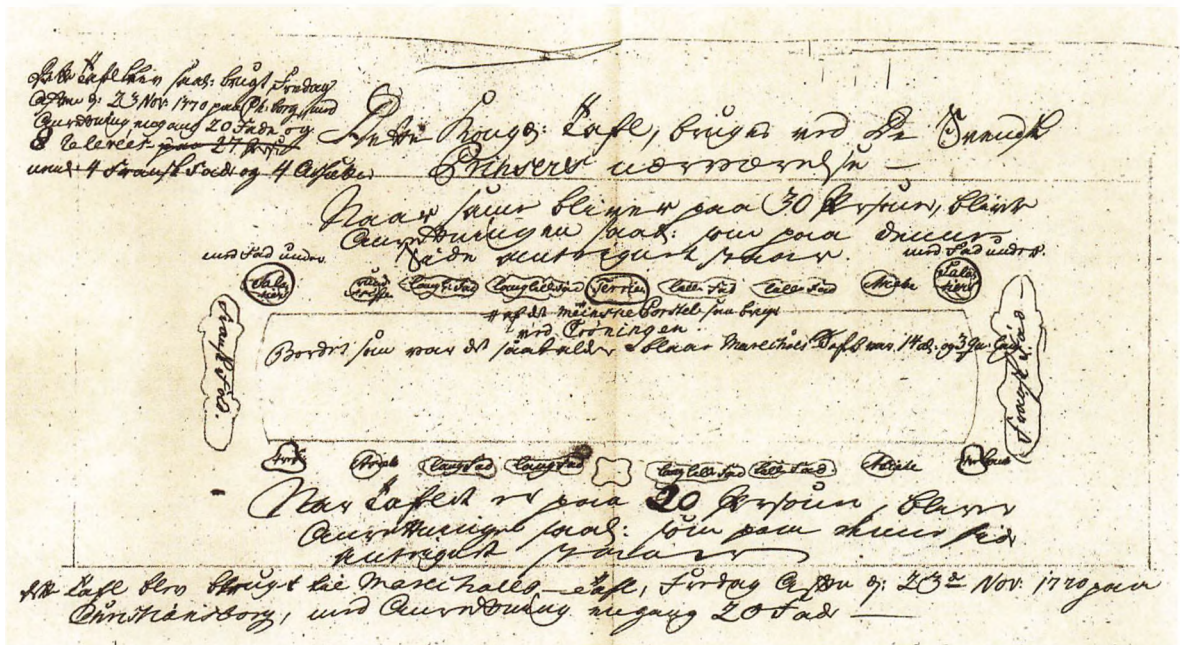 Dette Taffel blev saal: brugt Fredag
Aften d: 23 Nov. 1770 paa Ch:borg, med
Anretning engang 20 Fade og
8 paa
4 Fransk Fade og 4
Dette Konge: Tafl, bruges ved De Svenske
Prinsers nærværelse —
Naar samme bliver paa 30 Persohner, bliver
Anretningen saal: som paa denne
Side antegnet staaer.
med Fad under.
med Fad under.
Sala
tiere
lang Fad
lang lille Fad
Terrin
lille Fad
lille Fad
Assiette
Sala
tiere
fransk Fad.
fransk Fad
som brugt
ved Croningen.
Bordet som var det saakaldte blaae Mareshals Tafl var 14 al. og 3 qu. lang
Assiet
lang Fad
lang Fad
lang lille Fad
lille Fad
Assiette
Naar Taflet er paa 20 Persohner, bliver
Anretningen saal: som paa denne Side
antegnet staaer
dette Tafl blev brugt til Mareschalls-Tafl, Fredag Aften d: 23de Nov: 1770 paa
Christiansborg, med Anretning engang 20 Fade —